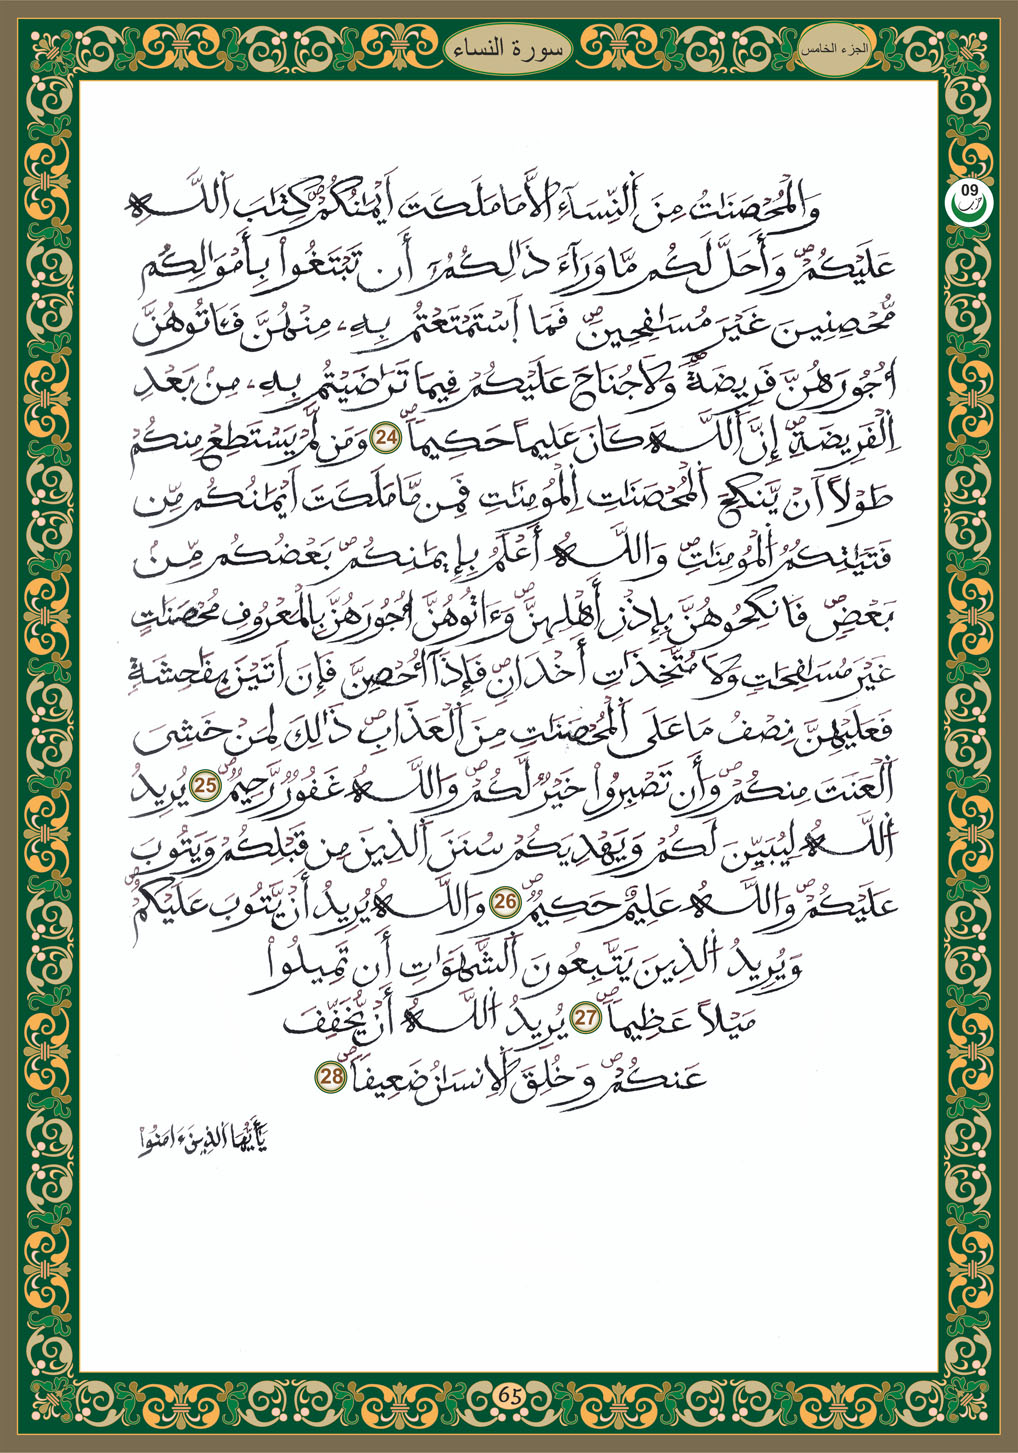 الجزء الخامس
سورة النساء
09
حزب
وَالْمُحْصَنَٰتُ مِنَ اَ۬لنِّسَآءِ الَّا مَا مَلَكَتَ اَيْمَٰنُكُمْ كِتَٰبَ اَ۬للَّهِ
عَلَيْكُمْ وَأَحَلَّ لَكُم مَّا وَرَآءَ ذَٰلِكُمُۥٓ أَن تَبْتَغُوا۟ بِأَمْوَٰلِكُم
مُّحْصِنِينَ غَيْرَ مُسَٰفِحِينَ فَمَا اَ۪سْتَمْتَعْتُم بِهِۦ مِنْهُنَّ فَـَٔاتُوهُنَّ
أُجُورَهُنَّ فَرِيضَةً وَلَا جُنَاحَ عَلَيْكُمْ فِيمَا تَرَٰضَيْتُم بِهِۦ مِنۢ بَعْدِ
اِ۬لْفَرِيضَةِ إِنَّ اَ۬للَّهَ كَانَ عَلِيماً حَكِيماً 24 وَمَن لَّمْ يَسْتَطِعْ مِنكُمْ
طَوْلاً اَنْ يَّنكِحَ اَ۬لْمُحْصَنَٰتِ اِ۬لْمُومِنَٰتِ فَمِن مَّا مَلَكَتَ اَيْمَٰنُكُم مِّن
فَتَيَٰتِكُمُ اُ۬لْمُومِنَٰتِ وَاللَّهُ أَعْلَمُ بِإِيمَٰنِكُم بَعْضُكُم مِّنۢ
بَعْضٍ فَانكِحُوهُنَّ بِإِذْنِ أَهْلِهِنَّ وَءَاتُوهُنَّ أُجُورَهُنَّ بِالْمَعْرُوفِ مُحْصَنَٰتٍ
غَيْرَ مُسَٰفِحَٰتٍ وَلَا مُتَّخِذَٰتِ أَخْدَانٍ فَإِذَآ أُحْصِنَّ فَإِنَ اَتَيْنَ بِفَٰحِشَةٍ
فَعَلَيْهِنَّ نِصْفُ مَا عَلَى اَ۬لْمُحْصَنَٰتِ مِنَ اَ۬لْعَذَابِ ذَٰلِكَ لِمَنْ خَشِيَ
اَ۬لْعَنَتَ مِنكُمْ وَأَن تَصْبِرُوا۟ خَيْرٌ لَّكُمْ وَاللَّهُ غَفُورٌ رَّحِيمٌ 25 يُرِيدُ
اُ۬للَّهُ لِيُبَيِّنَ لَكُمْ وَيَهْدِيَكُمْ سُنَنَ اَ۬لذِينَ مِن قَبْلِكُمْ وَيَتُوبَ
عَلَيْكُمْ وَاللَّهُ عَلِيمٌ حَكِيمٌ 26 وَاللَّهُ يُرِيدُ أَنْ يَّتُوبَ عَلَيْكُمْ
وَيُرِيدُ اُ۬لذِينَ يَتَّبِعُونَ اَ۬لشَّهَوَٰتِ أَن تَمِيلُوا۟
مَيْلاً عَظِيماً 27 يُرِيدُ اُ۬للَّهُ أَنْ يُّخَفِّفَ
عَنكُمْ وَخُلِقَ اَ۬لِانسَٰنُ ضَعِيفاً 28
يَٰٓأَيُّهَا اَ۬لذِينَ ءَامَنُوا۟
65